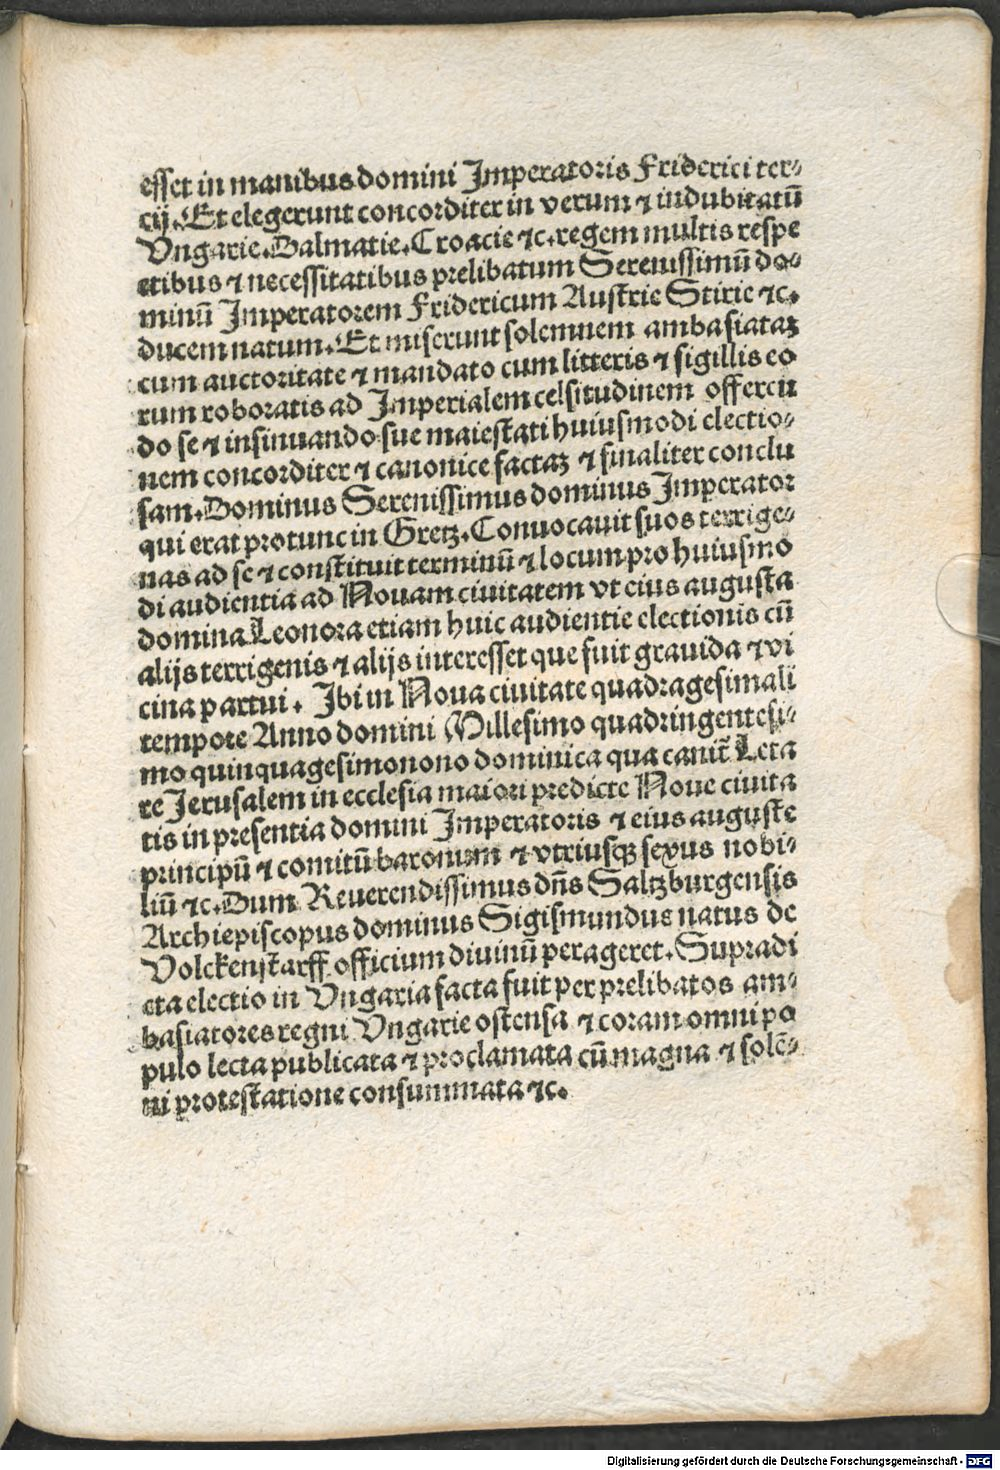 esset in manibus domini Imperatoris Friderici ter-
cij. Et elegerunt concorditer in verum ⁊ indubitatū
Vngarie. Dalmatie. Croacie ⁊c. regem multis respe
ctibus ⁊ necessitatibus prelibatum Serenissimū do-
minū Imperatorem Fridericum Austrie Stirie ⁊c.
ducem natum. Et miserunt solemnem ambasiataꝫ
cum auctoritate ⁊ mandato cum litteris ⁊ sigillis eo
rum roboratis ad Imperialem celsitudinem offeren
do se ⁊ insinuando sue maiestati huiusmodi electio-
nem concorditer ⁊ canonice factaꝫ ⁊ finaliter conclu
sam. Dominus Serenissimus dominus Imperator
qui erat protunc in Gretz. Conuocauit suos terrige-
nas ad se ⁊ constituit terminū ⁊ locum pro huiusmo
di audientia ad Nouam ciuitatem vt eius augusta
domina Leonora etiam huic audientie electionis cū
alijs terrigenis ⁊ alijs interesset que fuit grauida ⁊ vi
cina partui. Ibi in Noua ciuitate quadragesimali
tempore Anno domini Millesimo quadringentesi-
mo quinquagesimonono dominica qua canit̄ Leta
re Jerusalem in ecclesia maiori predicte Noue ciuita
tis in presentia domini Imperatoris ⁊ eius auguste
principū ⁊ comitū baronum ⁊ vtriusqꝫ sexus nobi-
liū ⁊c. Dum Reuerendissimus dn̄s Saltzburgensis
Archiepiscopus dominus Sigismundus natus de
Volckenstarff officium diuinū perageret. Supradi
cta electio in Vngaria facta fuit per prelibatos am-
basiatores regni Vngarie ostensa ⁊ coram omni po
pulo lecta publicata ⁊ proclamata cū magna ⁊ solē-
ni protestatione consummata ⁊c.
Digitalisierung gefördert durch die Deutsche Forschungsgemeinschaft - DFG